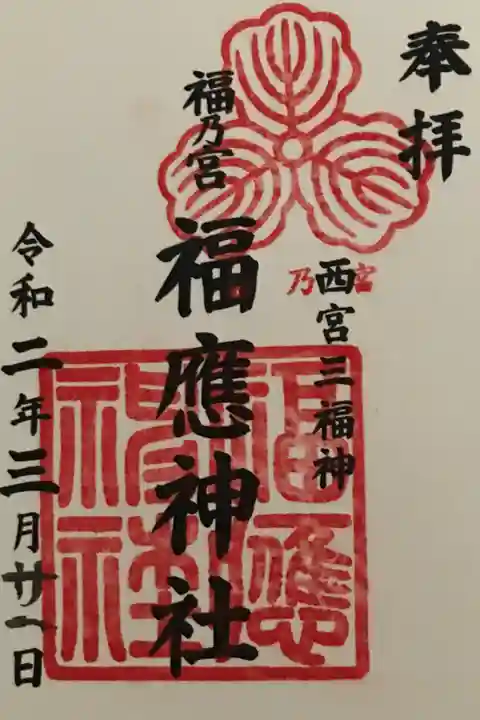 奉拝
西宮三福神
乃宮
福乃宮
福應神社
令和二年三月廿一日
福應
神社